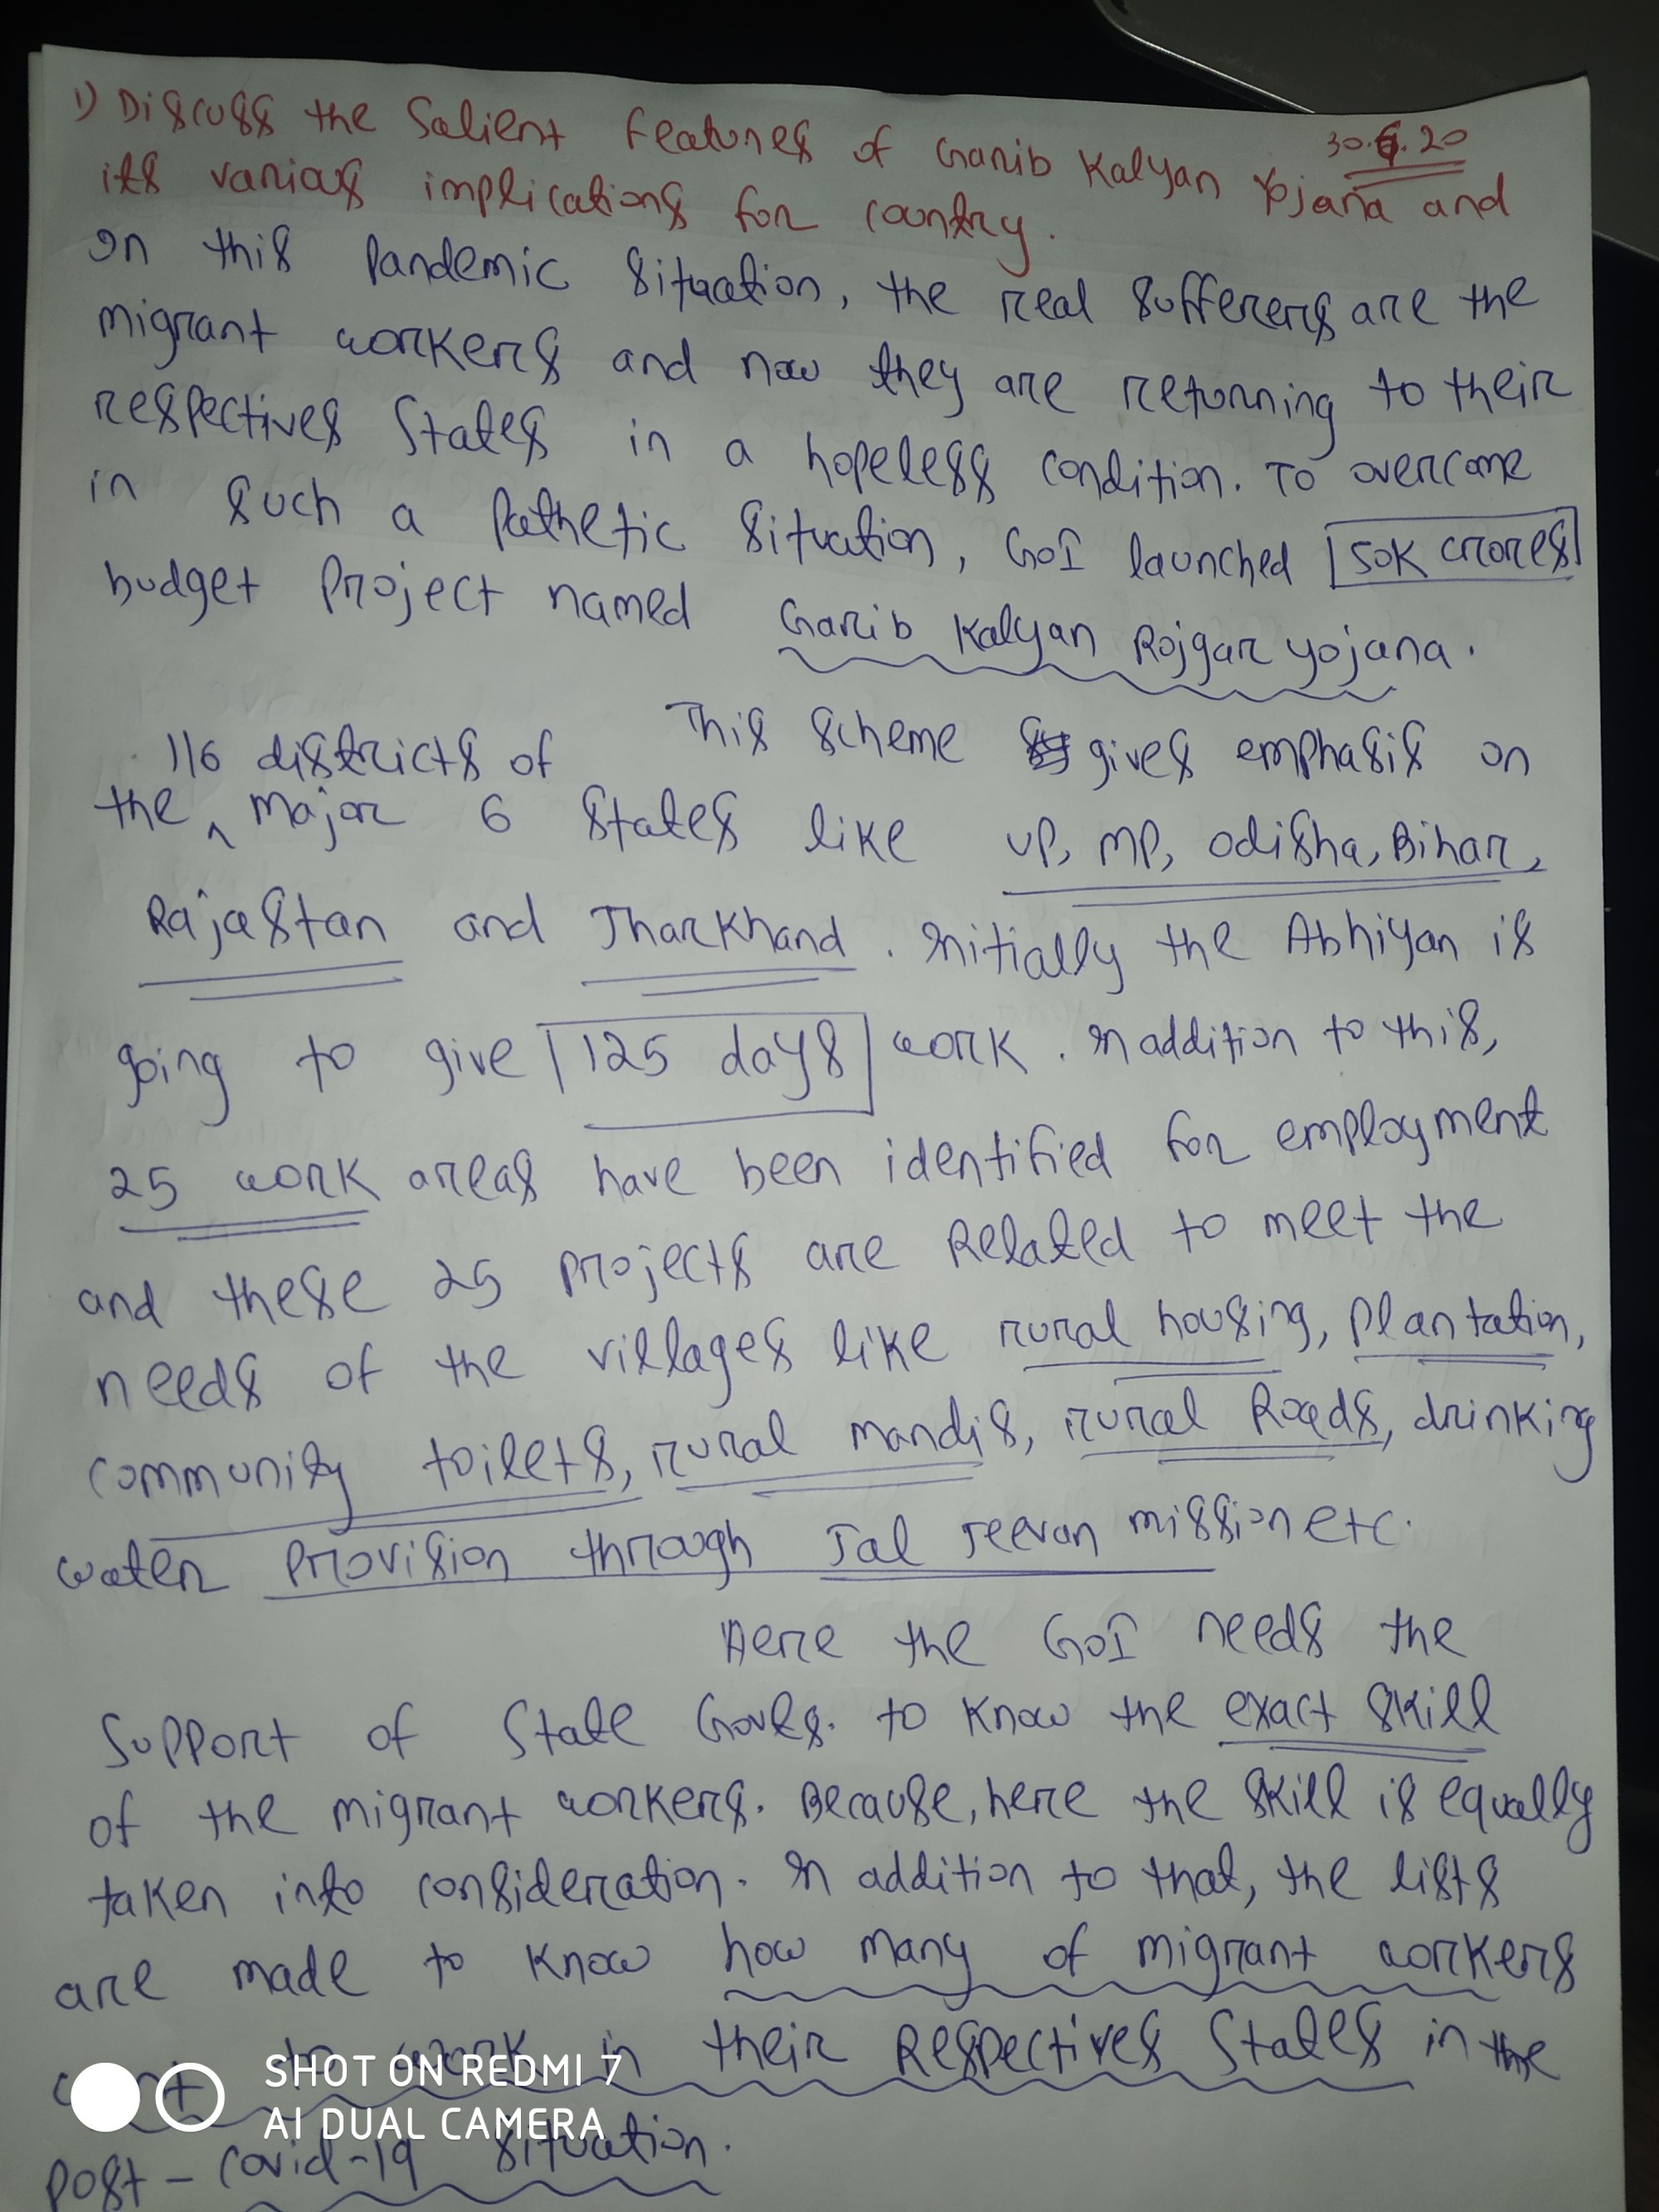 1) Discuss the Salient Features of Garib Kalyan Yojana and
30.6.20
its various implications for country.
In this Pandemic situation, the real sufferers are the
migrant workers and now they are returning to their
respectives States in a hopeless condition. To overcome
in such a Pathetic situation, GoI launched 50K crores
budget Project named Garib Kalyan Rojgar yojana.
This scheme gives emphasis on
116 districts of
the ^ major 6 States like UP, MP, Odisha, Bihar,
Rajastan and Jharkhand. Initially the Abhiyan is
going to give 125 days work. In addition to this,
25 work areas have been identified for employment
and these 25 projects are Related to meet the
needs of the villages like rural housing, Plantation,
community toilets, rural mandis, rural Roads, drinking
water Provision through Jal Jeevan mission etc.
Here the GoI needs the
Support of State Govts. to know the exact skill
of the migrant workers. Because, here the skill is equally
taken into consideration. In addition to that, the lists
are made to know how many of migrant workers
want to work in their Respectives States in the
SHOT ON REDMI 7
AI DUAL CAMERA
Post-Covid-19 situation.